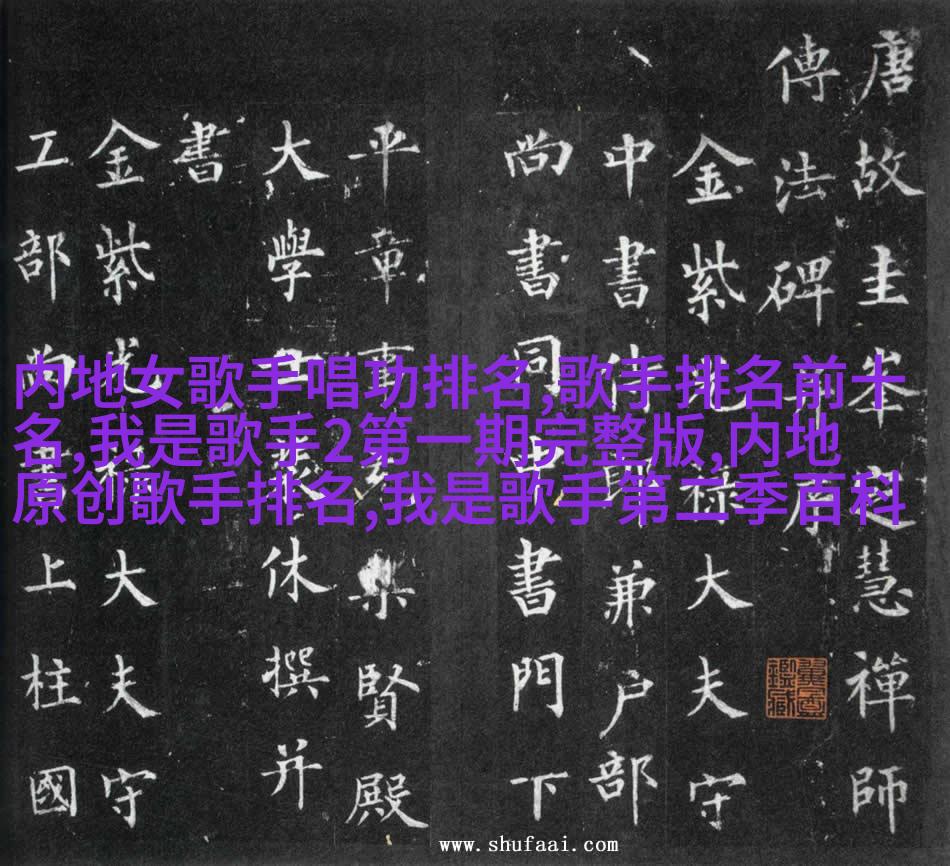 唐故圭峯定慧禪師
傳法碑并序
金紫光祿大夫守
中書侍郎兼户部
尚書同中書門下
平章事充集賢殿
大學士裴休撰并
書
金紫光祿大夫守
工部尚書上柱國
内地女歌手唱功排名,歌手排名前十
名,我是歌手2第一期完整版,内地
原创歌手排名,我是歌手第二季百科
www.shufaai.com